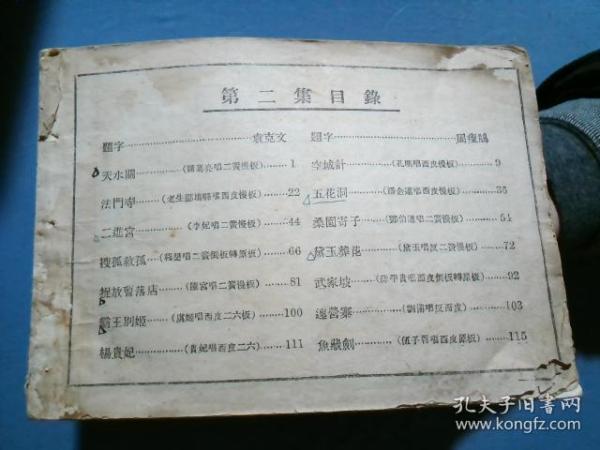 第二集目錄
題字 袁克文 題字 周瘦鵑
天水關 (諸葛亮唱二簧慢板) 1 空城計 (孔明唱西皮慢板) 9
法門寺 (老生郿塢縣唱西皮慢板) 22 五花洞 (潘金蓮唱西皮慢板) 36
二進宮 (李妃唱二簧慢板) 44 桑園寄子 (鄧伯道唱二簧慢板) 54
搜孤救孤 (唱二簧倒板轉原板) 66 黛玉葬花 (黛玉唱反二簧慢板) 72
捉放曹落店 (陳宮唱二簧慢板) 81 武家坡 (薛平貴唱西皮倒板轉原板) 92
霸王別姬 (虞姬唱西皮二六板) 100 連營寨 (劉備唱反西皮) 103
楊貴妃 (貴妃唱西皮二六) 111 魚藏劍 (伍子胥唱西皮原板) 115
孔夫子旧书网
www.kongfz.com